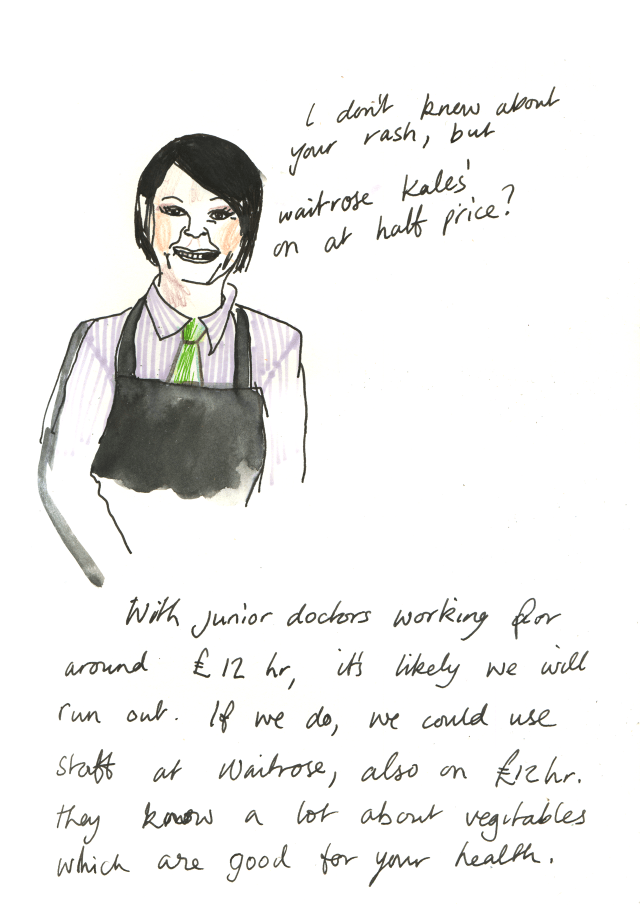 I don't know about
your rash, but
waitrose kales'
on at half price?
With junior doctors working for
around £12 hr, it's likely we will
run out. If we do, we could use
staff at Waitrose, also on £12hr.
they know a lot about vegitables
which are good for your health.